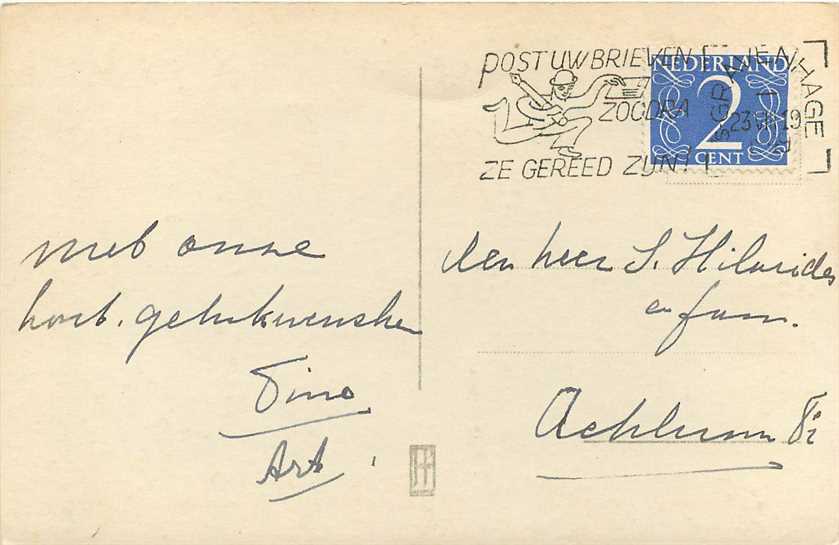 POST UW BRIEVEN
ZOODRA
ZE GEREED ZIJN!
'S GRAVENHAGE
23 VII 19
NEDERLAND
2
CENT
met onze
hart. gelukwenschen
Tine
Art.
den heer S. Hilarides
en fam.
Achlum